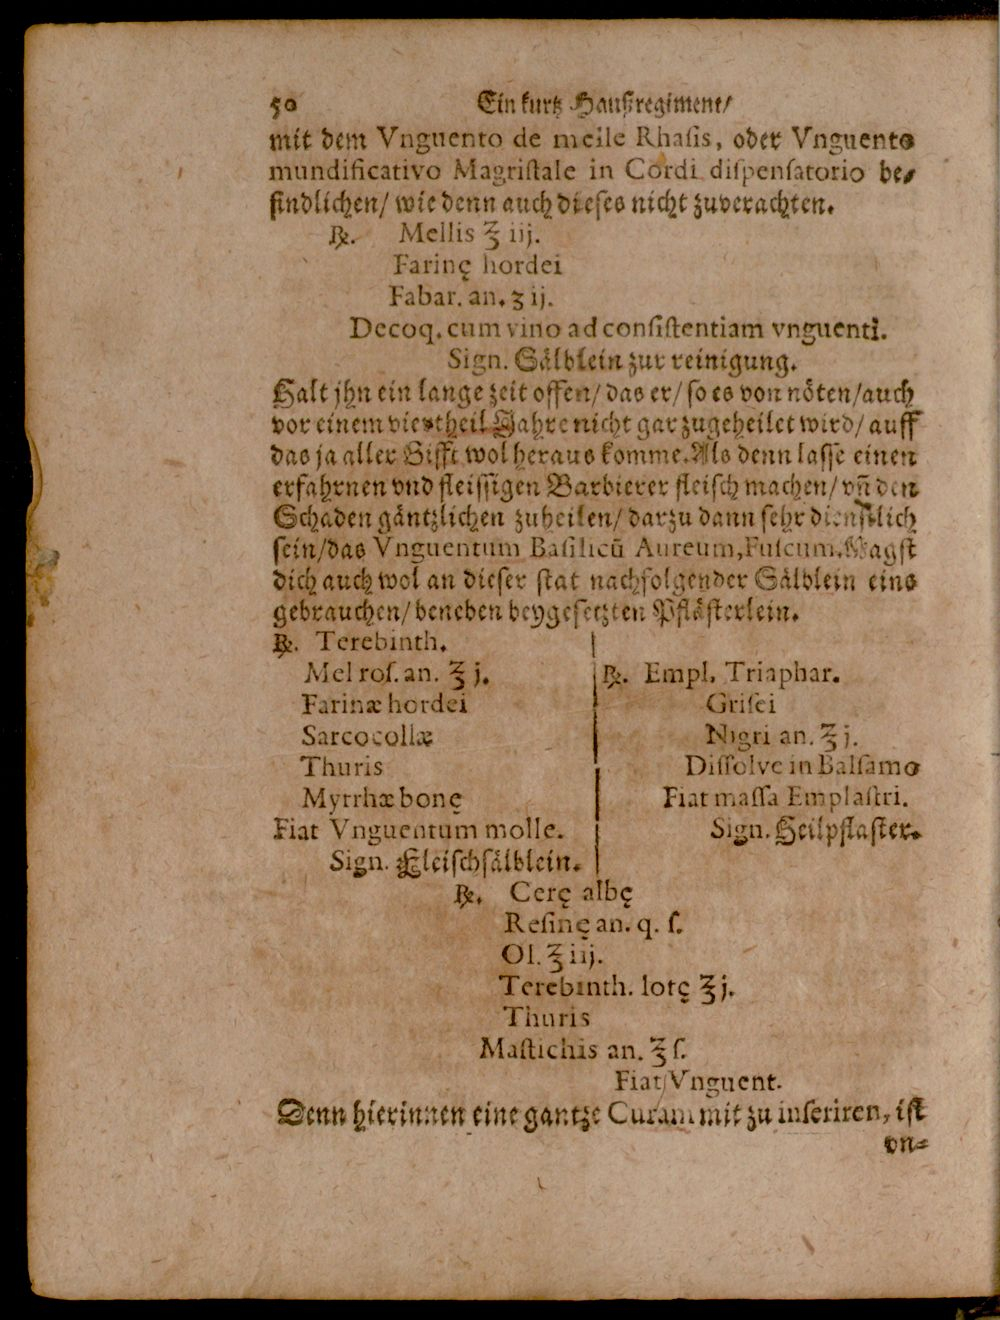 50 Ein kurtz Haußregiment/
mit dem Vnguento de melle Rhaſis, oder Vnguento
mundificativo Magriſtale in Cordi diſpenſatorio be-
findlichen/ wie denn auch dieſes nicht zuverachten.
℞. Mellis ℥ iij.
Farinę hordei
Fabar. an. ʒ ij.
Decoq. cum vino ad conſiſtentiam vnguenti.
Sign. Sälblein zur reinigung.
Halt jhn ein lange zeit offen/ das er/ ſo es von nöten/ auch
vor einem viertheil Jahre nicht gar zugeheilet wird/ auff
das ja aller Gifft wol heraus komme. Als denn laſſe einen
erfahrnen vnd fleiſſigen Barbierer fleiſch machen/ vñ den
Schaden gäntzlichen zuheilen/ darzu dann ſehr dienſtlich
ſein/ das Vnguentum Baſilicũ Aureum, Fuſcum. Magſt
dich auch wol an dieſer ſtat nachfolgender Sälblein eins
gebrauchen/ beneben beygeſetzten Pfläſterlein.
℞. Terebinth.
Mel roſ. an. ℥ j.
Farinæ hordei
Sarcocollæ
Thuris
Myrrhæ bonę
Fiat Vnguentum molle.
Sign. Fleiſchſälblein.
℞. Empl. Triaphar.
Griſei
Nigri an. ℥ j.
Diſſolve in Balſamo
Fiat maſſa Emplaſtri.
Sign. Heilpflaſter.
℞. Cerę albę
Reſinę an. q. ſ.
Ol. ℥ iij.
Terebinth. lotę ℥ j.
Thuris
Maſtichis an. ℥ ſ.
Fiat Vnguent.
Denn hierinnen eine gantze Curam mit zu inſeriren, iſt
vn-